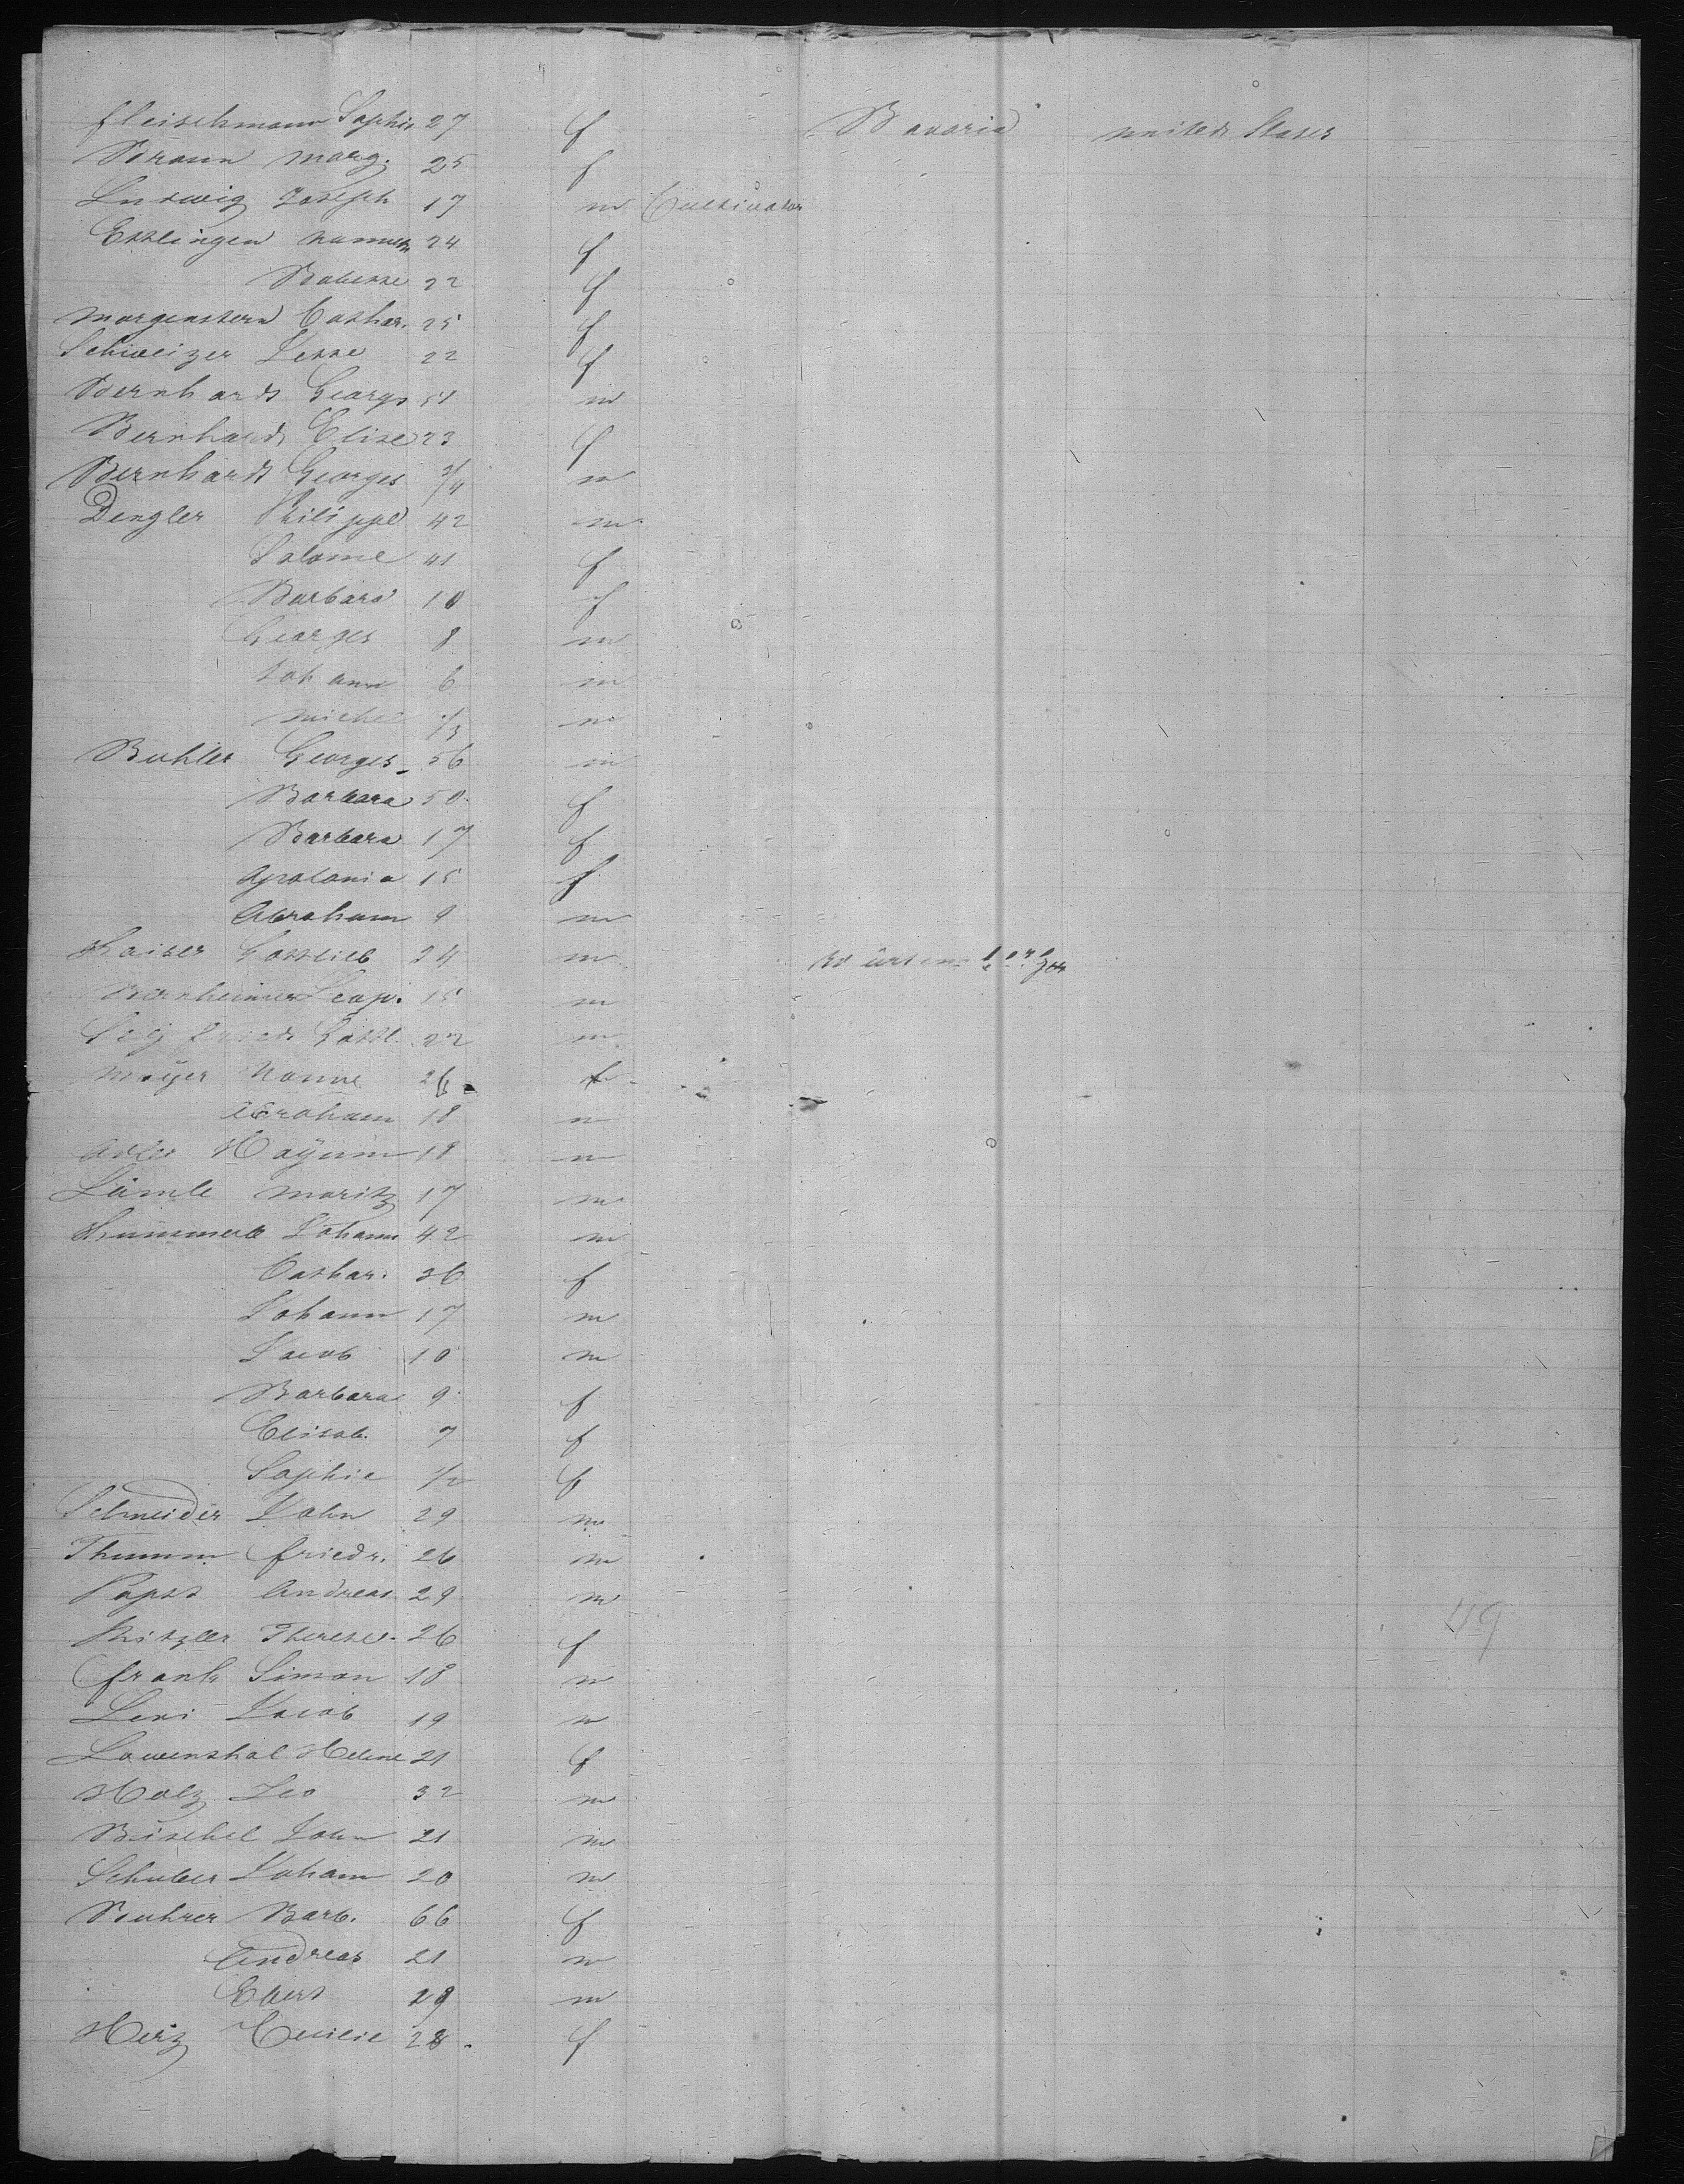 Fleischmann Sophie 27 f Bavaria united States
Braun Marg. 25 f
Ludwig Joseph 17 m Cultivator
Esslingen Nannett 24 f
Babette 22 f
Morgenstern Cathar. 25 f
Schweizer Jette 22 f
Bernhardt Georgs 51 m
Bernhardt Elise 23 f
Bernhardt Georges 3/4 m
Dengler Philippe 42 m
Salome 41 f
Barbara 10 f
Georges 8 m
Johann 6 m
Michel 1/3 m
Buhler Georges 56 m
Barbara 50 f
Barbara 17 f
Apolonia 15 f
Abraham 9 m
Kaiser Gottlieb 24 m Würtemberg
Bernheimer Leop. 15 m
Segfried Gottl. 22 m
Mayer Nanne 26 f
Abraham 18 m
Adler Hayum 18 m
Lämle Moritz 17 m
Kummerle Johann 42 m
Cathar. 36 f
Johann 17 m
Jacob 10 m
Barbara 9 f
Elisab. 7 f
Sophie 1/2 f
Schneider John 29 m
Thumm Friedr. 26 m
Papst Andreas 29 m
Therese 26 f 49
Frank Simon 18 m
Levi Jacob 19 m
Lowenthal Helene 21 f
Holz Leo 32 m
Büschel John 21 m
Schuber Johann 20 m
Buhrer Barb. 66 f
Andreas 21 m
Ebert 29 m
Herz Cecilie 28 f